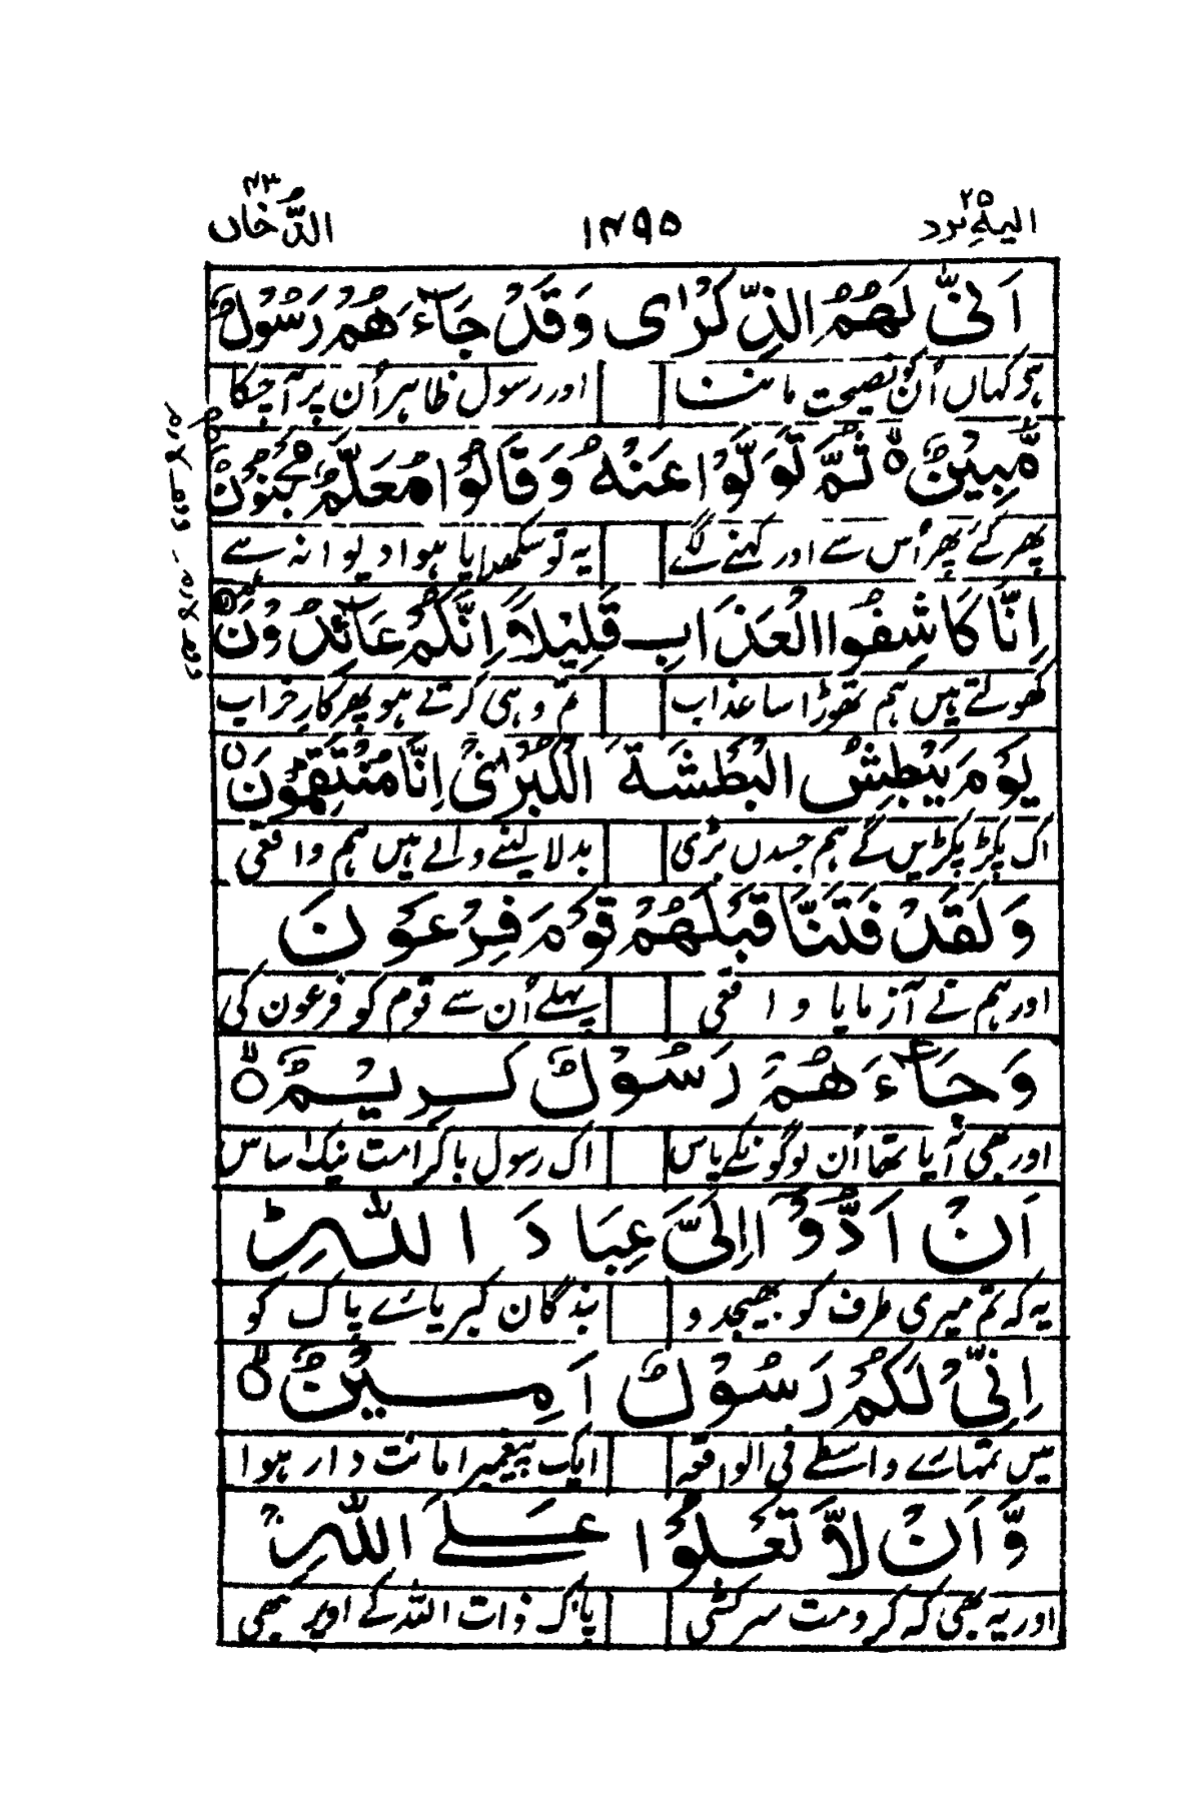 الیہ یرد ۲۵ ۱۴۹۵ الدُّخان ۴۳
اَنّٰى لَهُمُ الذِّكْرٰى وَقَدْ جَآءَهُمْ رَسُوْلٌ
ہے کہاں اُن کو نصیحت ماننا اور رسول ظاہر اُن پر آ چکا
مُّبِيْنٌ ثُمَّ تَوَلَّوْا عَنْهُ وَقَالُوْا مُعَلَّمٌ مَّجْنُوْنٌ
پھر گئے پھر اُس سے اور کہنے لگے یہ تو سکھلایا ہوا دیوانہ سے
اِنَّا كَاشِفُوا الْعَذَابِ قَلِيْلًا اِنَّكُمْ عَآئِدُوْنَ
کھولتے ہیں ہم تھوڑا سا عذاب تم وہی کرتے ہو پھر کارِ خراب
يَوْمَ نَبْطِشُ الْبَطْشَةَ الْكُبْرٰى اِنَّا مُنْتَقِمُوْنَ
اک پکڑ پکڑیں گے ہم جسدن بڑی بدلا لینے والے ہیں ہم واقعی
وَلَقَدْ فَتَنَّا قَبْلَهُمْ قَوْمَ فِرْعَوْنَ
اور ہم نے آزمایا واقعی پہلے اُن سے قوم کو فرعون کی
وَجَآءَهُمْ رَسُوْلٌ كَرِيْمٌ
اور بھی آیا تھا اُن لوگونکے پاس اک رسول باکرامت نیک اساس
اَنْ اَدُّوْٓا اِلَيَّ عِبَادَ اللّٰهِ
یہ کہ تم میری طرف کو بھیجدو بندگان کبریائے پاک کو
اِنِّيْ لَكُمْ رَسُوْلٌ اَمِيْنٌ
میں تمہارے واسطے فی الواقعہ ایک پیغمبر امانت دار ہوا
وَّاَنْ لَّا تَعْلُوْا عَلَى اللّٰهِ
اور یہ بھی کہ کرو مت سرکشی پاک ذات اللہ کے اوپر کبھی